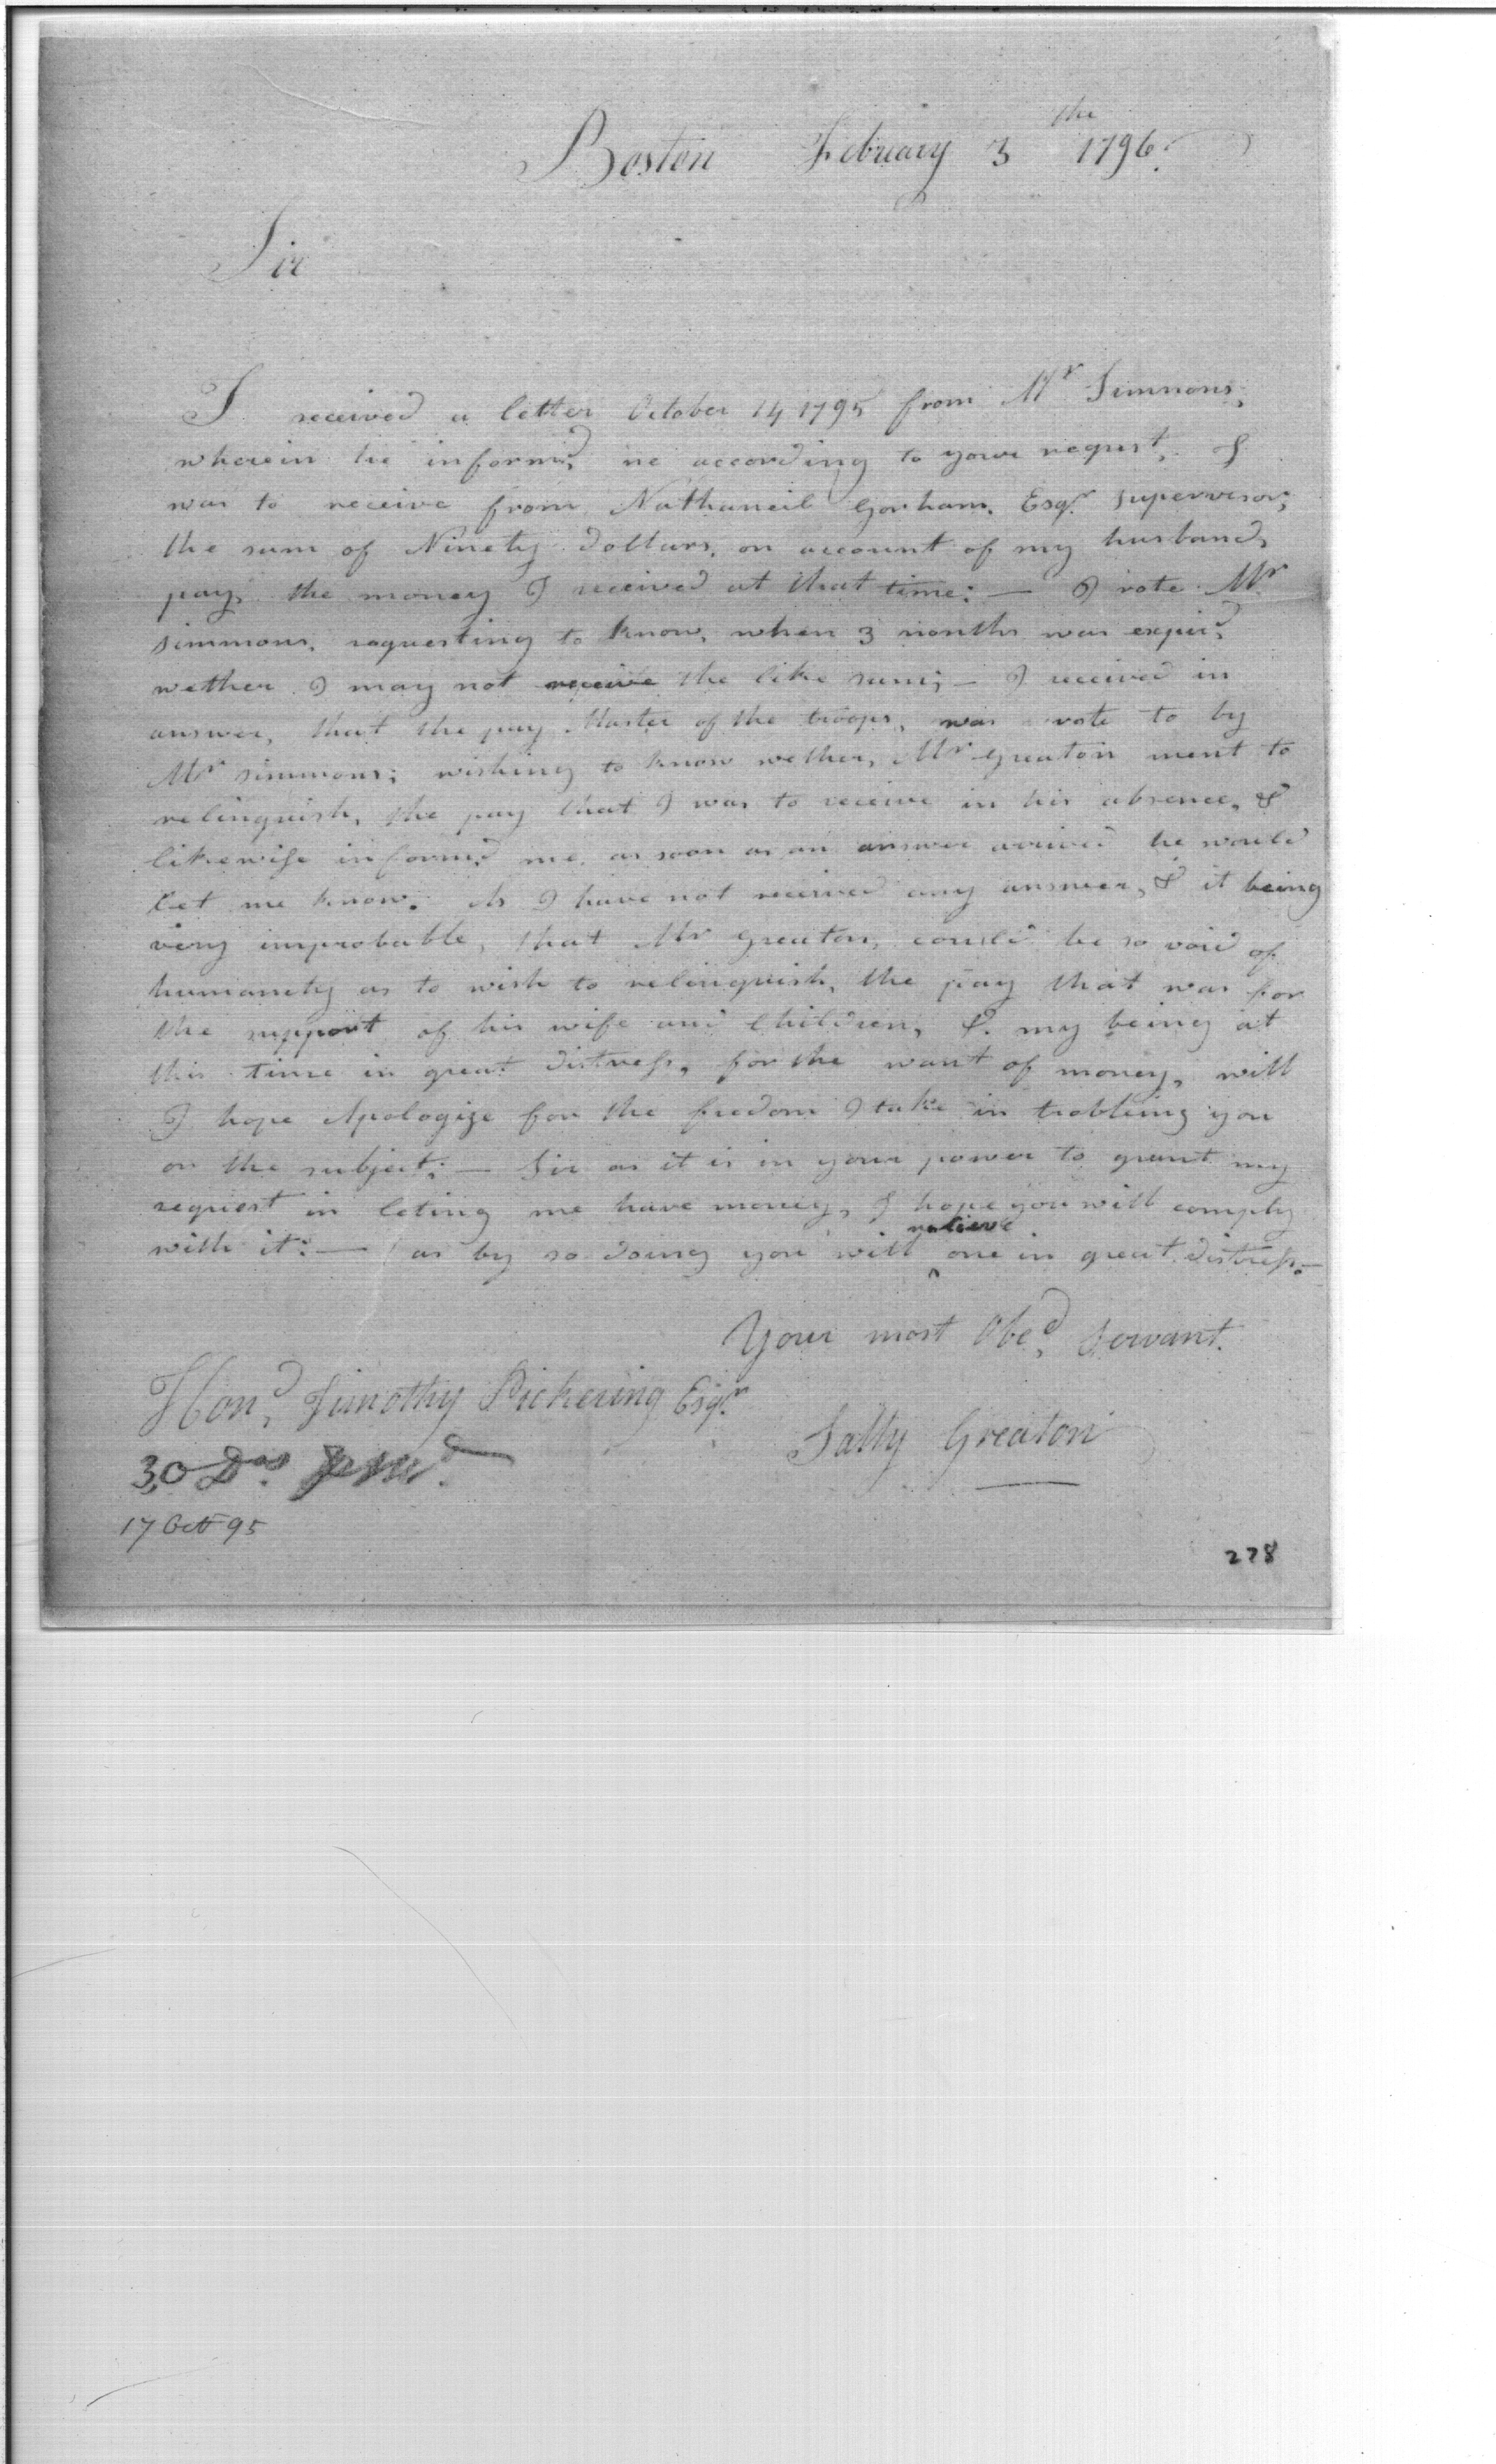 Boston February 3 the 1796.
Sir
I received a letter October 14 1795 from Mr Simmons,
wherein he informd, me according to your request, I
was to receive from Nathaneil Gorham. Esqr. Supervisor;
the sum of Ninety Dollars, on account of my husbands,
pay, the money I received at that time: — I rote Mr
simmons, requesting to know, when 3 months was expird,
wether I may not receive the like sum; — I received in
answer, that the pay Master of the troops, was wrote to by
Mr simmons; wishing to know wether, Mr Greaton ment to
relinquish, the pay that I was to receive in his absence, &
likewise informd me as soon as an answer arrived he would
let me know. As I have not received any answer, & it being
very improbable, that Mr Greaton, could be so void of
humanety as to wish to relinquish, the pay that was for
the support of his wife and Children, & my being at
this time in great distress, for the want of money, will
I hope Apologize for the fredom I take in trobling you
on the subject; — Sir as it is in your power to grant my
request in leting me have money, I hope you will comply
with it: — as by so doing you will relieve one in great distress. —
Your most Obed, Servant.
Hond, Timothy Pickering Esqr.
Sally Greaton
30 Ds
17 Oct 95
228